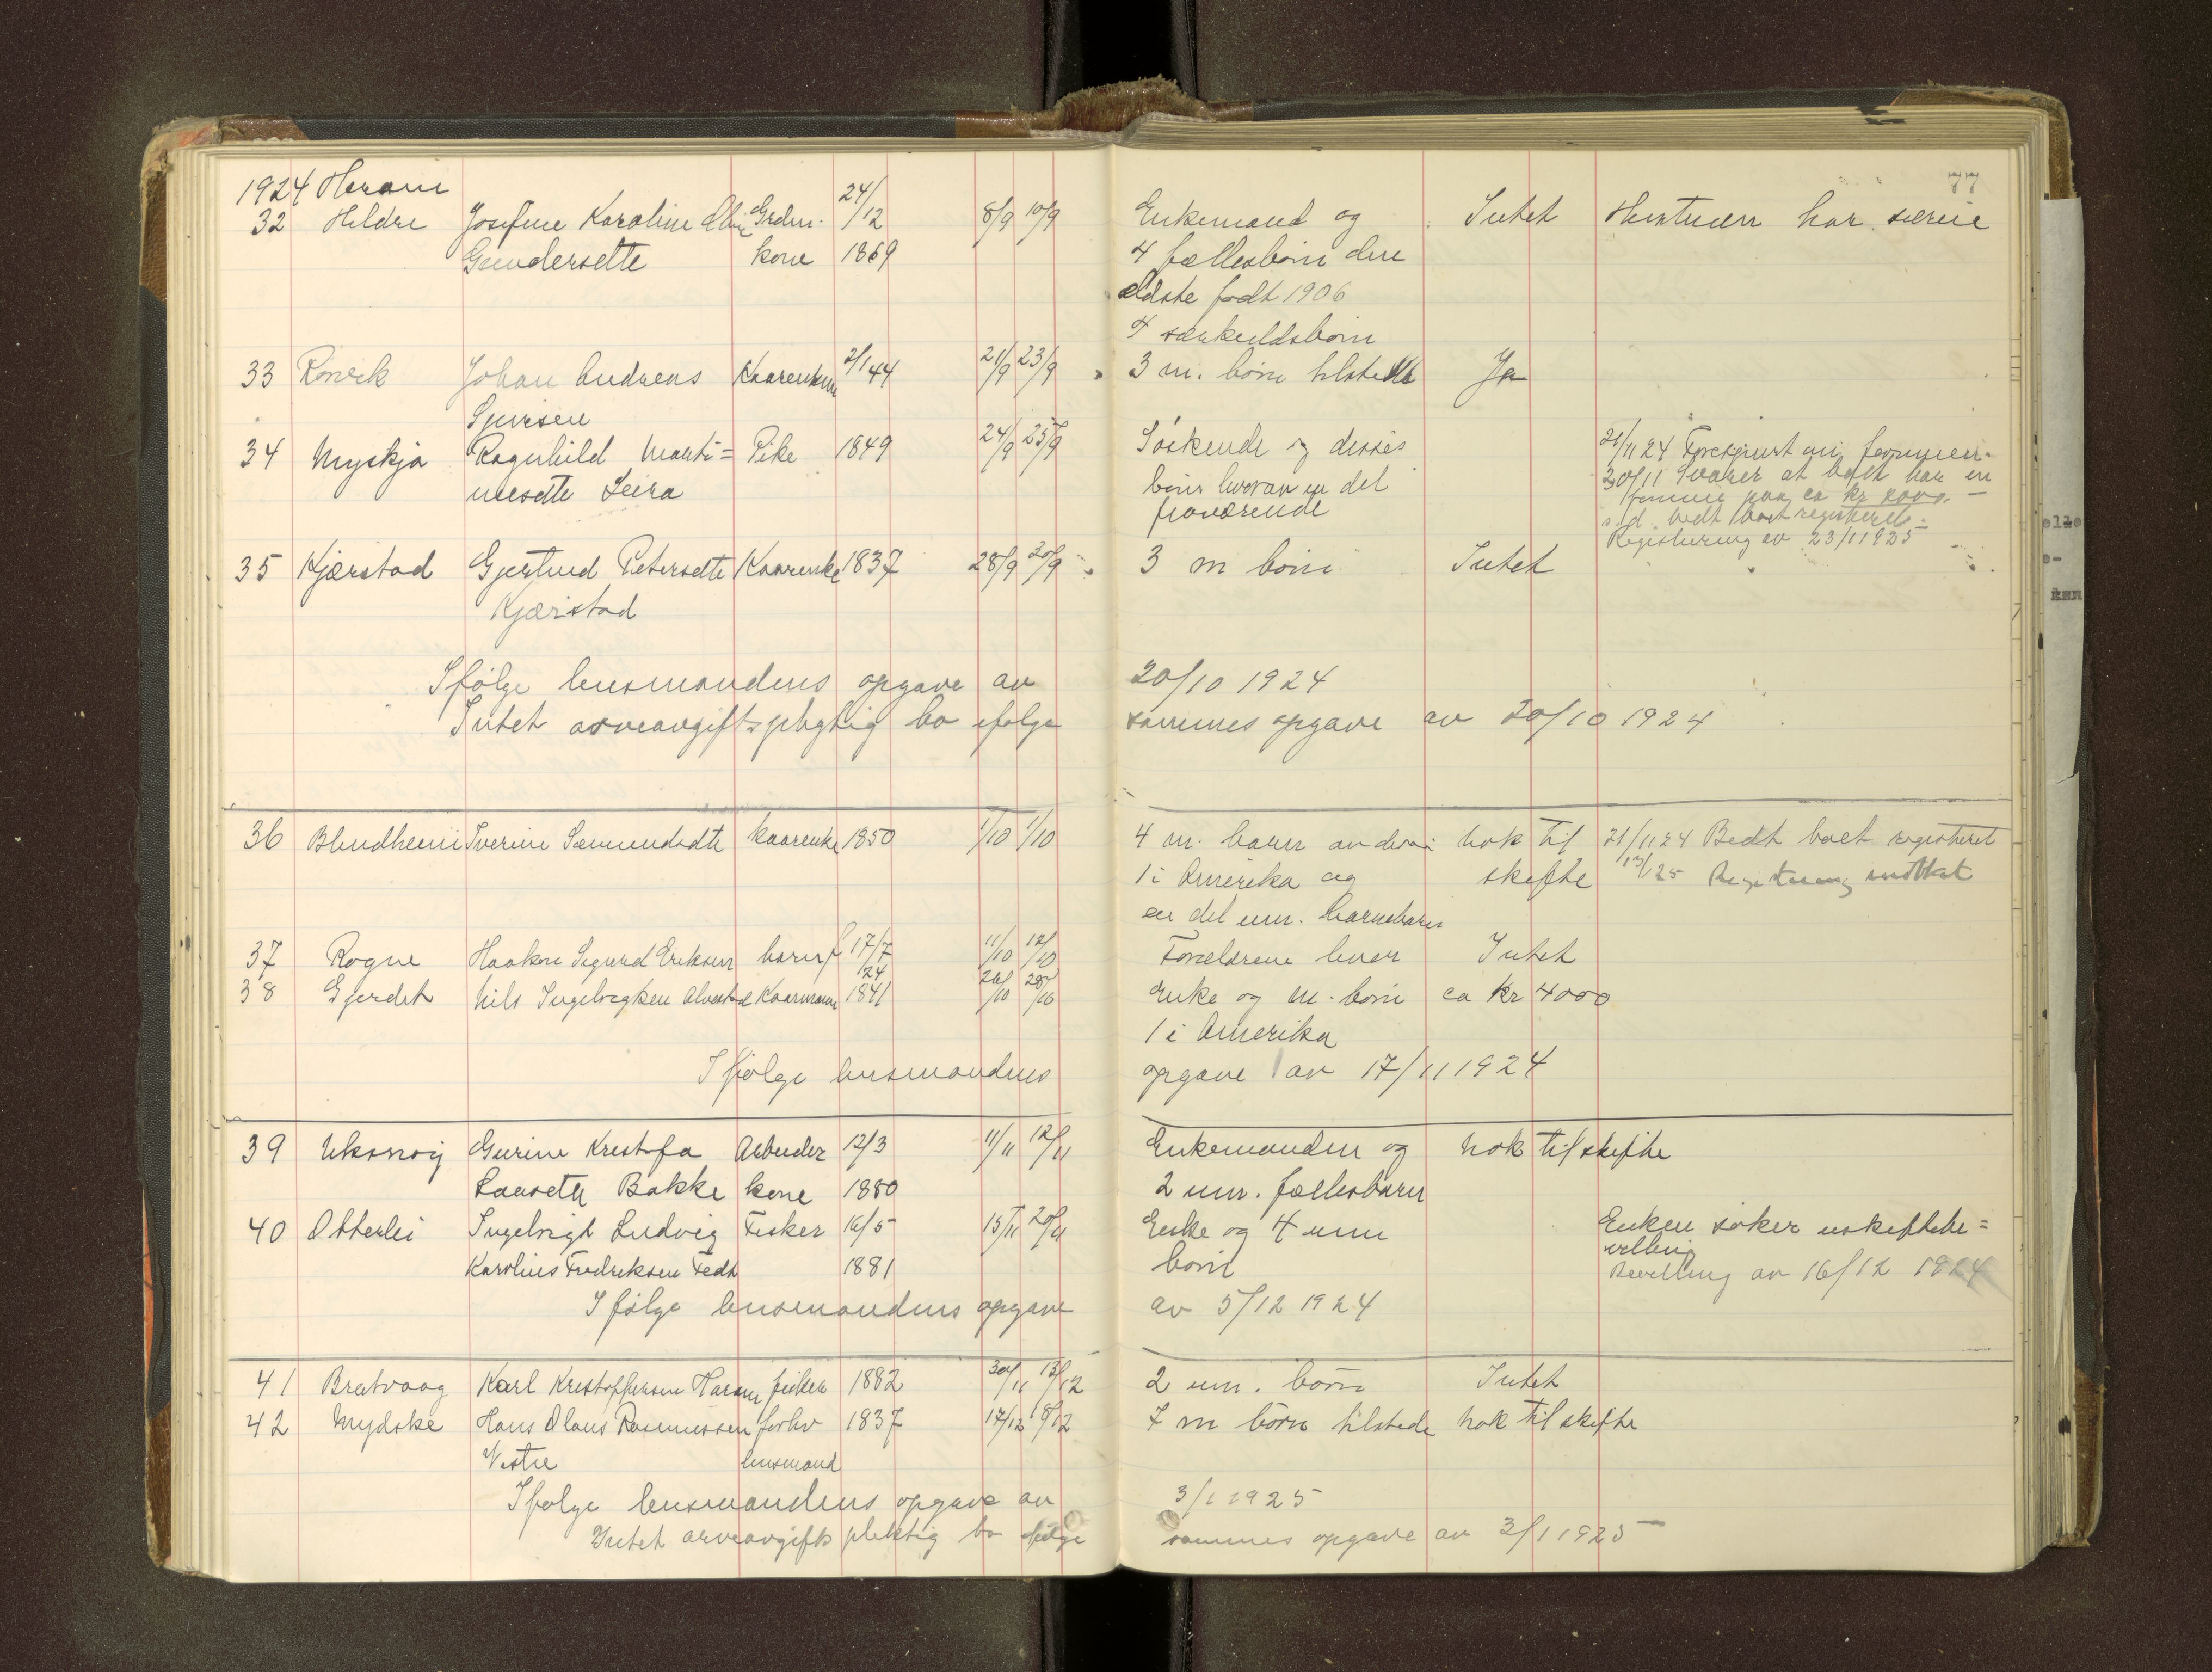 77
1924 Haram
32 Hildre Josefine Karoline Grdm. 24/12 8/9 10/9 Enkemand og Intet har særeie
Gundersdtr kone 1869 4 fællesbørn
ældste født 1906
4 særkuldsbørn
33 Rønvik Johan Andreas 2/1 44 21/9 23/9 3 m. børn tilstede Ja
Sjursen
34 Myskja Ragnhild Marti= Pike 1849 24/9 25/9 Søskende og disses 21/11 24
nusdtr Leira børn hvorav en del 30/11 Svarer at boet har en
fraværende formue paa ca kr
s.d. bedt boet registreret.
Registrering av 23/1 1925
35 Kjærstad Gjertrud Petersdtr Kaarenke 1837 28/9 3 m børn Intet
Kjærstad
Ifølge lensmandens opgave av 20/10 1924
Intet arveavgiftspligtig bo ifølge sammes opgave av 20/10 1924
36 Blindheim Sverine Sæmundsdtr kaarenke 1850 1/10 1/10 4 m. barn nok til 21/11 24 Bedt boet registreret
1 i Amerika og skifte Registrering
en del um. barnebarn
37 Rogne Haakon Sigurd Eriksen barn 17/7 24 11/10 12/10 Forældrene lever Intet
38 Gjerdet Nils Kaarmann 1841 Enke og m. børn ca kr 4000
1 i Amerika
Ifølge lensmandens opgave av 17/11 1924
39 Uksnøy Gurine Kristofa Arbeider 12/3 11/11 12/11 Enkemanden og nok til skifte
Bakke kone 1880 2 um. fællesbarn
40 Otterlei Ingebrigt Ludvig Fisker 16/5 15/11 20/11 Enke og 4 um Enken søker uskiftebe=
Karolius Fredriksen 1881 børn villing
Bevilling av 16/12 1924
Ifølge lensmandens opgave av 5/12 1924
41 Bratvaag Karl Kristoffersen Haram fisker 1882 30/11 13/12 2 um. børn Intet
42 Mydske Hans Olaus Rasmussen forhv 1837 17/12 7 m børn tilstede nok til skifte
Vestre lensmand
Ifølge lensmandens opgave av 3/1 1925
Intet arveavgifts pliktig bo ifølge sammes opgave av 3/1 1925